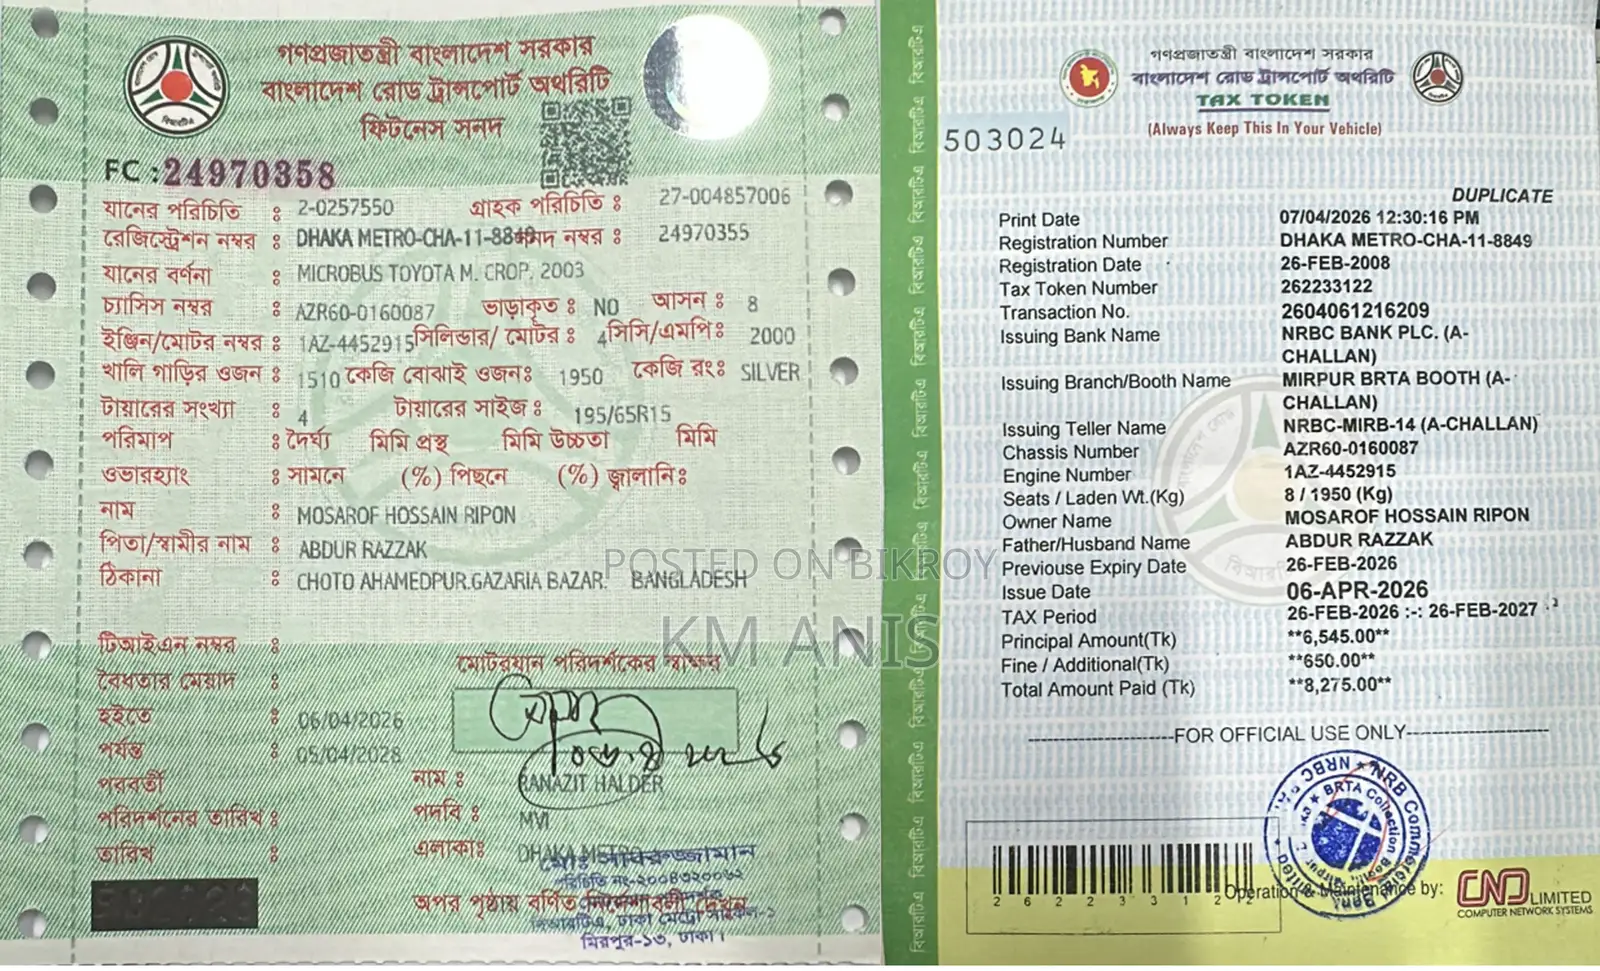 গণপ্রজাতন্ত্রী বাংলাদেশ সরকার
বাংলাদেশ রোড ট্রান্সপোর্ট অথরিটি
ফিটনেস সনদ
FC : 24970358
যানের পরিচিতি : 2-0257550 গ্রাহক পরিচিতি : 27-004857006
রেজিস্ট্রেশন নম্বর : DHAKA METRO-CHA-11-8849 সনদ নম্বর : 24970355
যানের বর্ণনা : MICROBUS TOYOTA M. CROP. 2003
চ্যাসিস নম্বর : AZR60-0160087 ভাড়াকৃত : NO আসন : 8
ইঞ্জিন/মোটর নম্বর : 1AZ-4452915 সিলিন্ডার/ মোটর : 4 সিসি/এমপি : 2000
খালি গাড়ির ওজন : 1510 কেজি বোঝাই ওজন : 1950 কেজি রং : SILVER
টায়ারের সংখ্যা : 4 টায়ারের সাইজ : 195/65R15
পরিমাপ : দৈর্ঘ্য মিমি প্রস্থ মিমি উচ্চতা মিমি
ওভারহ্যাং : সামনে (%) পিছনে (%) জ্বালানি :
নাম : MOSAROF HOSSAIN RIPON
পিতা/স্বামীর নাম : ABDUR RAZZAK
ঠিকানা : CHOTO AHAMEDPUR.GAZARIA BAZAR. BANGLADESH
টিআইএন নম্বর :
মোটরযান পরিদর্শকের স্বাক্ষর
বৈধতার মেয়াদ :
হইতে : 06/04/2026
পর্যন্ত : 05/04/2028
পরবর্তী নাম : RANAZIT HALDER
পরিদর্শনের তারিখ : পদবি : MVI
তারিখ : এলাকা : DHAKA METRO
পরিচিতি নং-২০০৪৩২০০৬২
অপর পৃষ্ঠায় বর্ণিত নির্দেশাবলী দেখুন
বিআরটিএ, ঢাকা মেট্রো সার্কেল-১
মিরপুর-১৩, ঢাকা।
বিআরটিএ বিআরটিএ বিআরটিএ বিআরটিএ বিআরটিএ বিআরটিএ বিআরটিএ
গণপ্রজাতন্ত্রী বাংলাদেশ সরকার
বাংলাদেশ রোড ট্রান্সপোর্ট অথরিটি
TAX TOKEN
(Always Keep This In Your Vehicle)
503024
DUPLICATE
Print Date 07/04/2026 12:30:16 PM
Registration Number DHAKA METRO-CHA-11-8849
Registration Date 26-FEB-2008
Tax Token Number 262233122
Transaction No. 2604061216209
Issuing Bank Name NRBC BANK PLC. (A-
CHALLAN)
Issuing Branch/Booth Name MIRPUR BRTA BOOTH (A-
CHALLAN)
Issuing Teller Name NRBC-MIRB-14 (A-CHALLAN)
Chassis Number AZR60-0160087
Engine Number 1AZ-4452915
Seats / Laden Wt.(Kg) 8 / 1950 (Kg)
Owner Name MOSAROF HOSSAIN RIPON
Father/Husband Name ABDUR RAZZAK
Previouse Expiry Date 26-FEB-2026
Issue Date 06-APR-2026
TAX Period 26-FEB-2026 :-: 26-FEB-2027
Principal Amount(Tk) **6,545.00**
Fine / Additional(Tk) **650.00**
Total Amount Paid (Tk) **8,275.00**
FOR OFFICIAL USE ONLY
BRTA Collection Booth
2 6 2 2 3 3 1 2 2
Operation & Maintenance by:
CNS LIMITED
COMPUTER NETWORK SYSTEMS
POSTED ON BIKROY
KM ANIS